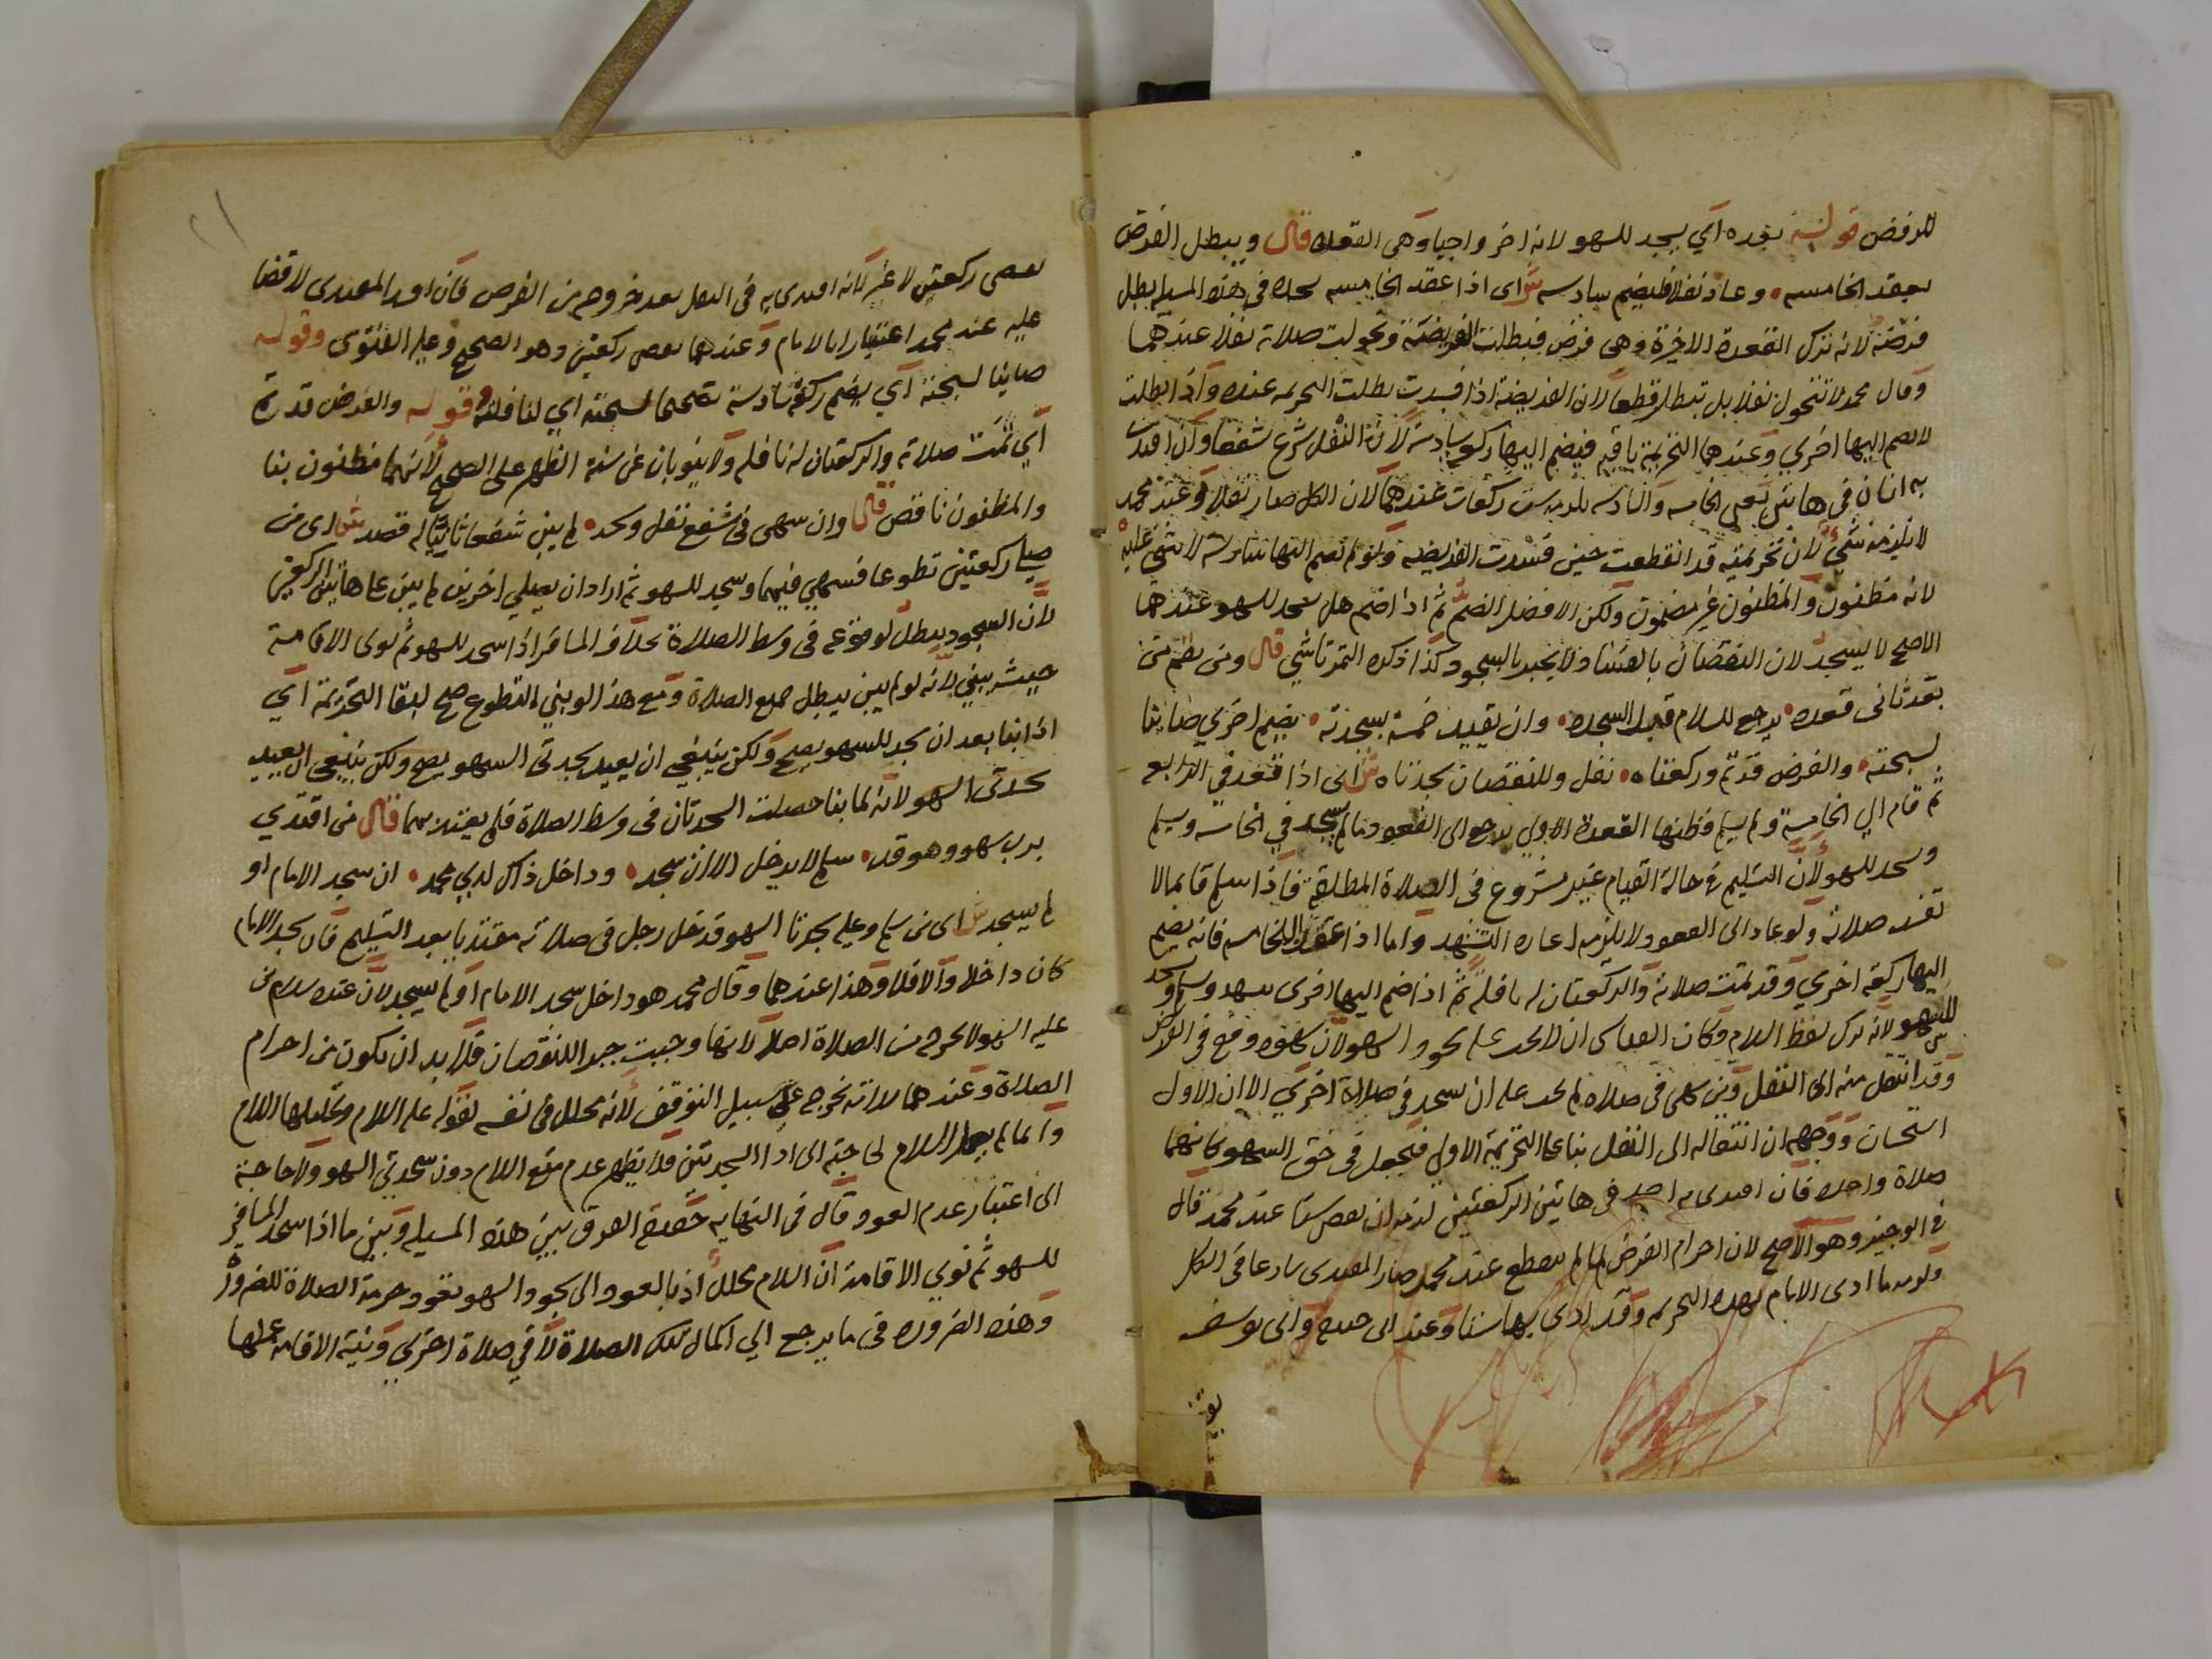 للرفض قوله بعده اي يسجد للسهو لانه اخر واجبا وهي القعدة قال ويبطل الفرض
بعقد الخامسه وعاد نفلا فليضم سادسه ش اى اذا عقد الخامسه بسجده في هذه المسيله بطل
فرضه لانه ترك القعدة الاخيرة وهى فرض فبطلت الفريضة وتحولت صلاته نفلا عندهما
وقال محمد لا تتحول نفلا بل تبطل قطعا لان الفريضة اذا فسدت بطلت التحريمه عنده واذا بطلت
لا يضم اليها اخري وعندهما التحريمة باقيه فيضم اليها ركعه سادسة لان النفل شرع شفعا وان اقتدى
به انسان في هاتين يعني الخامسه والسادسه يلزمه ست ركعات عندهما لان الكل صار نفلا وعند محمد
لا يلزمه شيء لان تحريمته قد انقطعت حين فسدت الفريضه ولو لم يضم اليها سادسة لا شي عليه
لانه مظنون والمظنون غير مضمون ولكن الافضل الضم ثم اذا ضم هل يسجد للسهو عندهما
الاصح لا يسجد لان النقصان بالفساد لا يجبر بالسجود كذا ذكره التمرتاشي قال ومن يقم من
بعد ثانى قعده يرجع للسلام قبل السجده وان يقيد خمسة بسجدته يضم اخري صاينا
لسبحته والفرض قد تم وركعتاه نفل وللنقصان سجدتاه ش اى اذا قعد في الرابعه
ثم قام الي الخامسة ولم يسلم وظنها القعدة الاولي يرجع الى القعود ما لم يسجد في الخامسه ويسلم
وسجد للسهو لان التسليم في حالة القيام غير مشروع في الصلاة المطلقة فاذا سلم قايما لا
تفسد صلاته ولو عاد الى القعود لا يلزمه اعادة التشهد واما اذا عقد الخامسه فانه يضم
اليها ركعه اخري وقد تمت صلاته والركعتان له نافلة ثم اذا ضم اليها اخرى يتشهد ويسلم ويسجد
للسهو لانه ترك لفظ السلام وكان القياس ان لا يجب عليه سجود السهو لان سهوه وقع في الفرض
وقد انتقل منه الى النفل ومن سهى في صلاة لم يجب عليه ان يسجد في صلاة اخري الا ان الاول
استحسان ووجهه ان انتقاله الى النفل بناء على التحريمة الاولي فيجعل في حق السهو كانهما
صلاة واحده فان اقتدى به احد في هاتين الركعتين لزمه ان يقضي ستا عند محمد قال
في الوجيز وهو الاصح لان احرام الفرض لما لم ينقطع عند محمد صار المقتدى شارعا في الكل
ولزمه ما ادى الامام بهذه التحريمه وقد ادى بها ستا وعند ابى حنيفة وابى يوسف
يقضى ركعتين لا غير لانه اقتدى به فى النفل بعد خروجه من الفرض فان افسد المقتدى لا قضا
عليه عند محمد اعتبارا بالامام وعندهما يقضى ركعتين وهو الصحيح وعليه الفتوى وقوله
صاينا لسبحته اي يضم ركعة سادسة تصحيحا لسبحته اي لنافلته قوله والفرض قد تم
اي تمت صلاته والركعتان له نافله ولا ينوبان عن سنة الظهر على الصحيح لانهما مظنون بنا
والمظنون ناقص قال وان سهى فى شفع نفل وسجد لم يبن شفعا ثانيا له قصد ش اى من
صلي ركعتين تطوعا فسهي فيهما وسجد للسهو ثم اراد ان يصلي اخريين لم يبن على هاتين الركعتين
لان السجود يبطل لوقوعه في وسط الصلاة بخلاف المسافر اذا سجد للسهو ثم نوى الاقامة
حيث يبني لانه لو لم يبن يبطل جميع الصلاة ومع هذا لو بني المتطوع صح لبقا التحريمة اي
اذا بنا بعد ان سجد للسهو يصح ولكن ينبغي ان يعيد سجدتى السهو يصح ولكن ينبغي ان يعيد
سجدتى السهو لانه لما بنا حصلت السجدتان في وسط الصلاة فلم يعتد بهما قال من اقتدي
برب سهو وهو قد سلم لا يدخل الا ان سجد وداخل ذاك لدي محمد ان سجد الامام او
لم يسجد ش اى من سلم وعليه سجدتا السهو فدخل رجل فى صلاته مقتديا بعد التسليم فان سجد الامام
كان داخلا والا فلا وهذا عندهما وقال محمد هو داخل سجد الامام او لم يسجد لان عنده سلام من
عليه السهو لا يخرجه من الصلاة اصلا لانها وجبت جبرا للنقصان فلا بد ان يكون من احرام
الصلاة وعندهما سلامه يخرجه على سبيل التوقف لانه محلل في نفسه لقوله عليه السلام وتحليلها السلام
وانما لم يعمل السلام لحاجته الى ادا السجدتين فلا يظهر عدم منع السلام دون سجدتي السهو ولا حاجة
الى اعتبار عدم العود وقال فى النهايه حقيقة الفرق بين هذه المسيله وبين ما اذا سجد المسافر
للسهو ثم نوي الاقامة ان السلام محلل اذ بالعود الى سجود السهو تعود حرمة الصلاة للضرورة
وهذه الضرورة في ما يرجع الي اكمال تلك الصلاة لا في صلاة اخري ونية الاقامه عملها